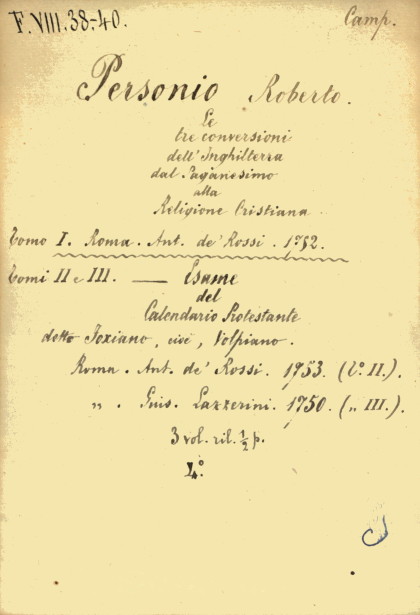 F. VIII. 38-40.
Camp.
Personio Roberto.
Le
tre conversioni
dell' Inghilterra
dal Paganesimo
alla
Religione Cristiana
Tomo I. Roma. Ant. de' Rossi. 1752.
Tomi II e III. — Esame
del
Calendario Protestante
detto Foxiano, cioè, Volpiano.
Roma. Ant. de' Rossi. 1753. (to. II.).
„ . Gius. Lazzerini. 1750. („ III.).
3 vol. ril. ½ p.
4.°